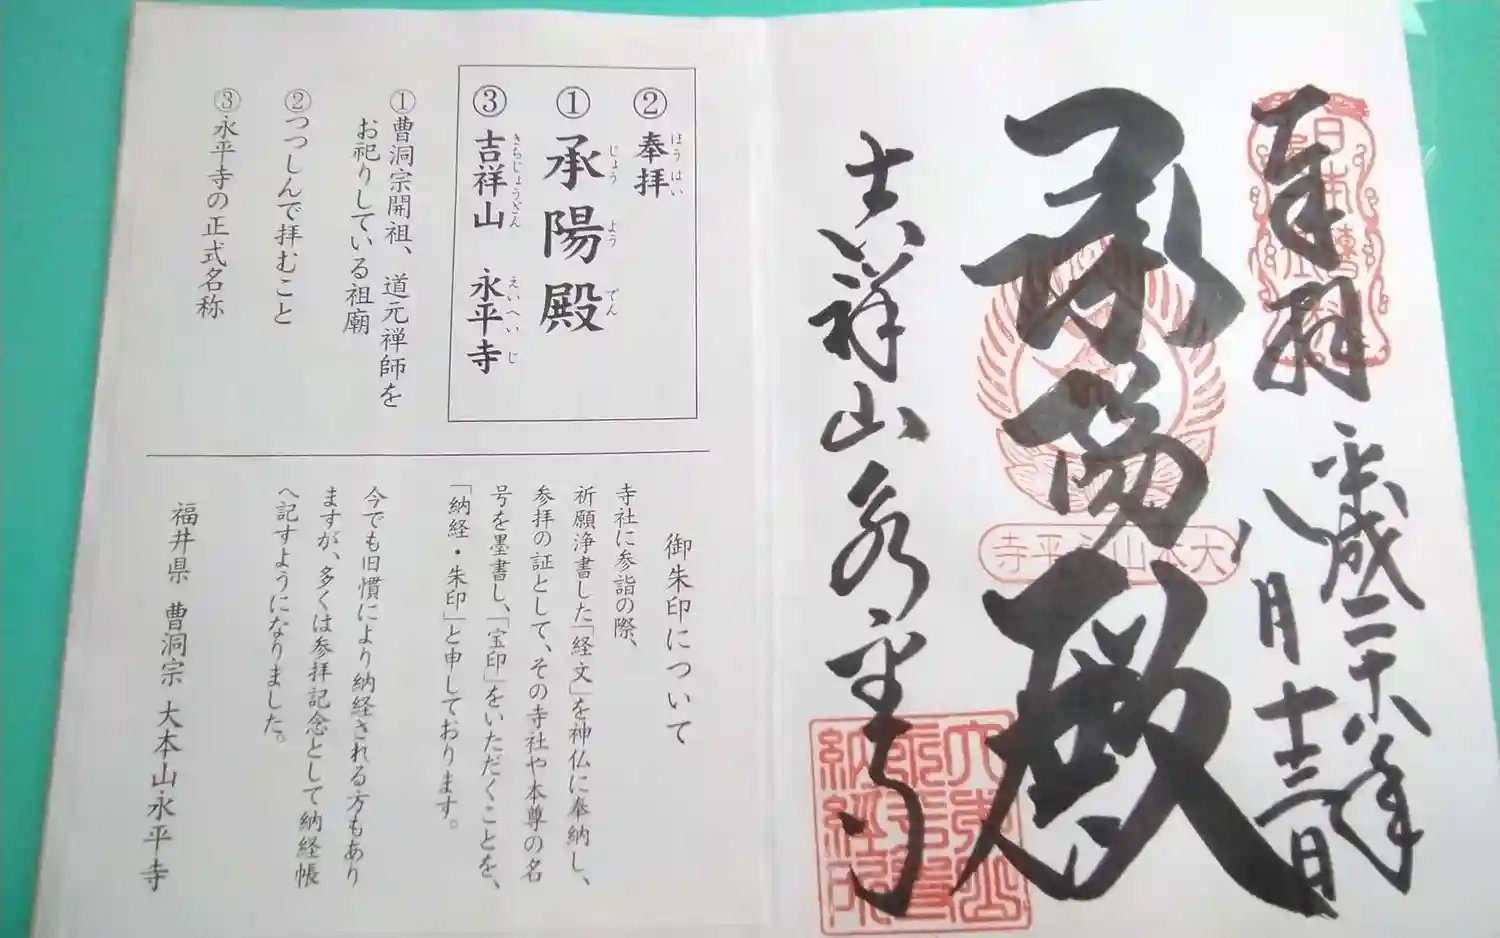 奉拝
平成二十八年
八月十三日
承陽殿
大本山永平寺
吉祥山永平寺
大本山
永平寺
納経所
②奉拝
ほうはい
①承陽殿
じょうようでん
③吉祥山 永平寺
きちじょうざん えいへいじ
①曹洞宗開祖、道元禅師を
お祀りしている祖廟
②つつしんで拝むこと
③永平寺の正式名称
御朱印について
寺社に参詣の際、
祈願浄書した「経文」を神仏に奉納し、
参拝の証として、その寺社や本尊の名
号を墨書し、「宝印」をいただくことを、
「納経・朱印」と申しております。
今でも旧慣により納経される方もあり
ますが、多くは参拝記念として納経帳
へ記すようになりました。
福井県 曹洞宗 大本山永平寺